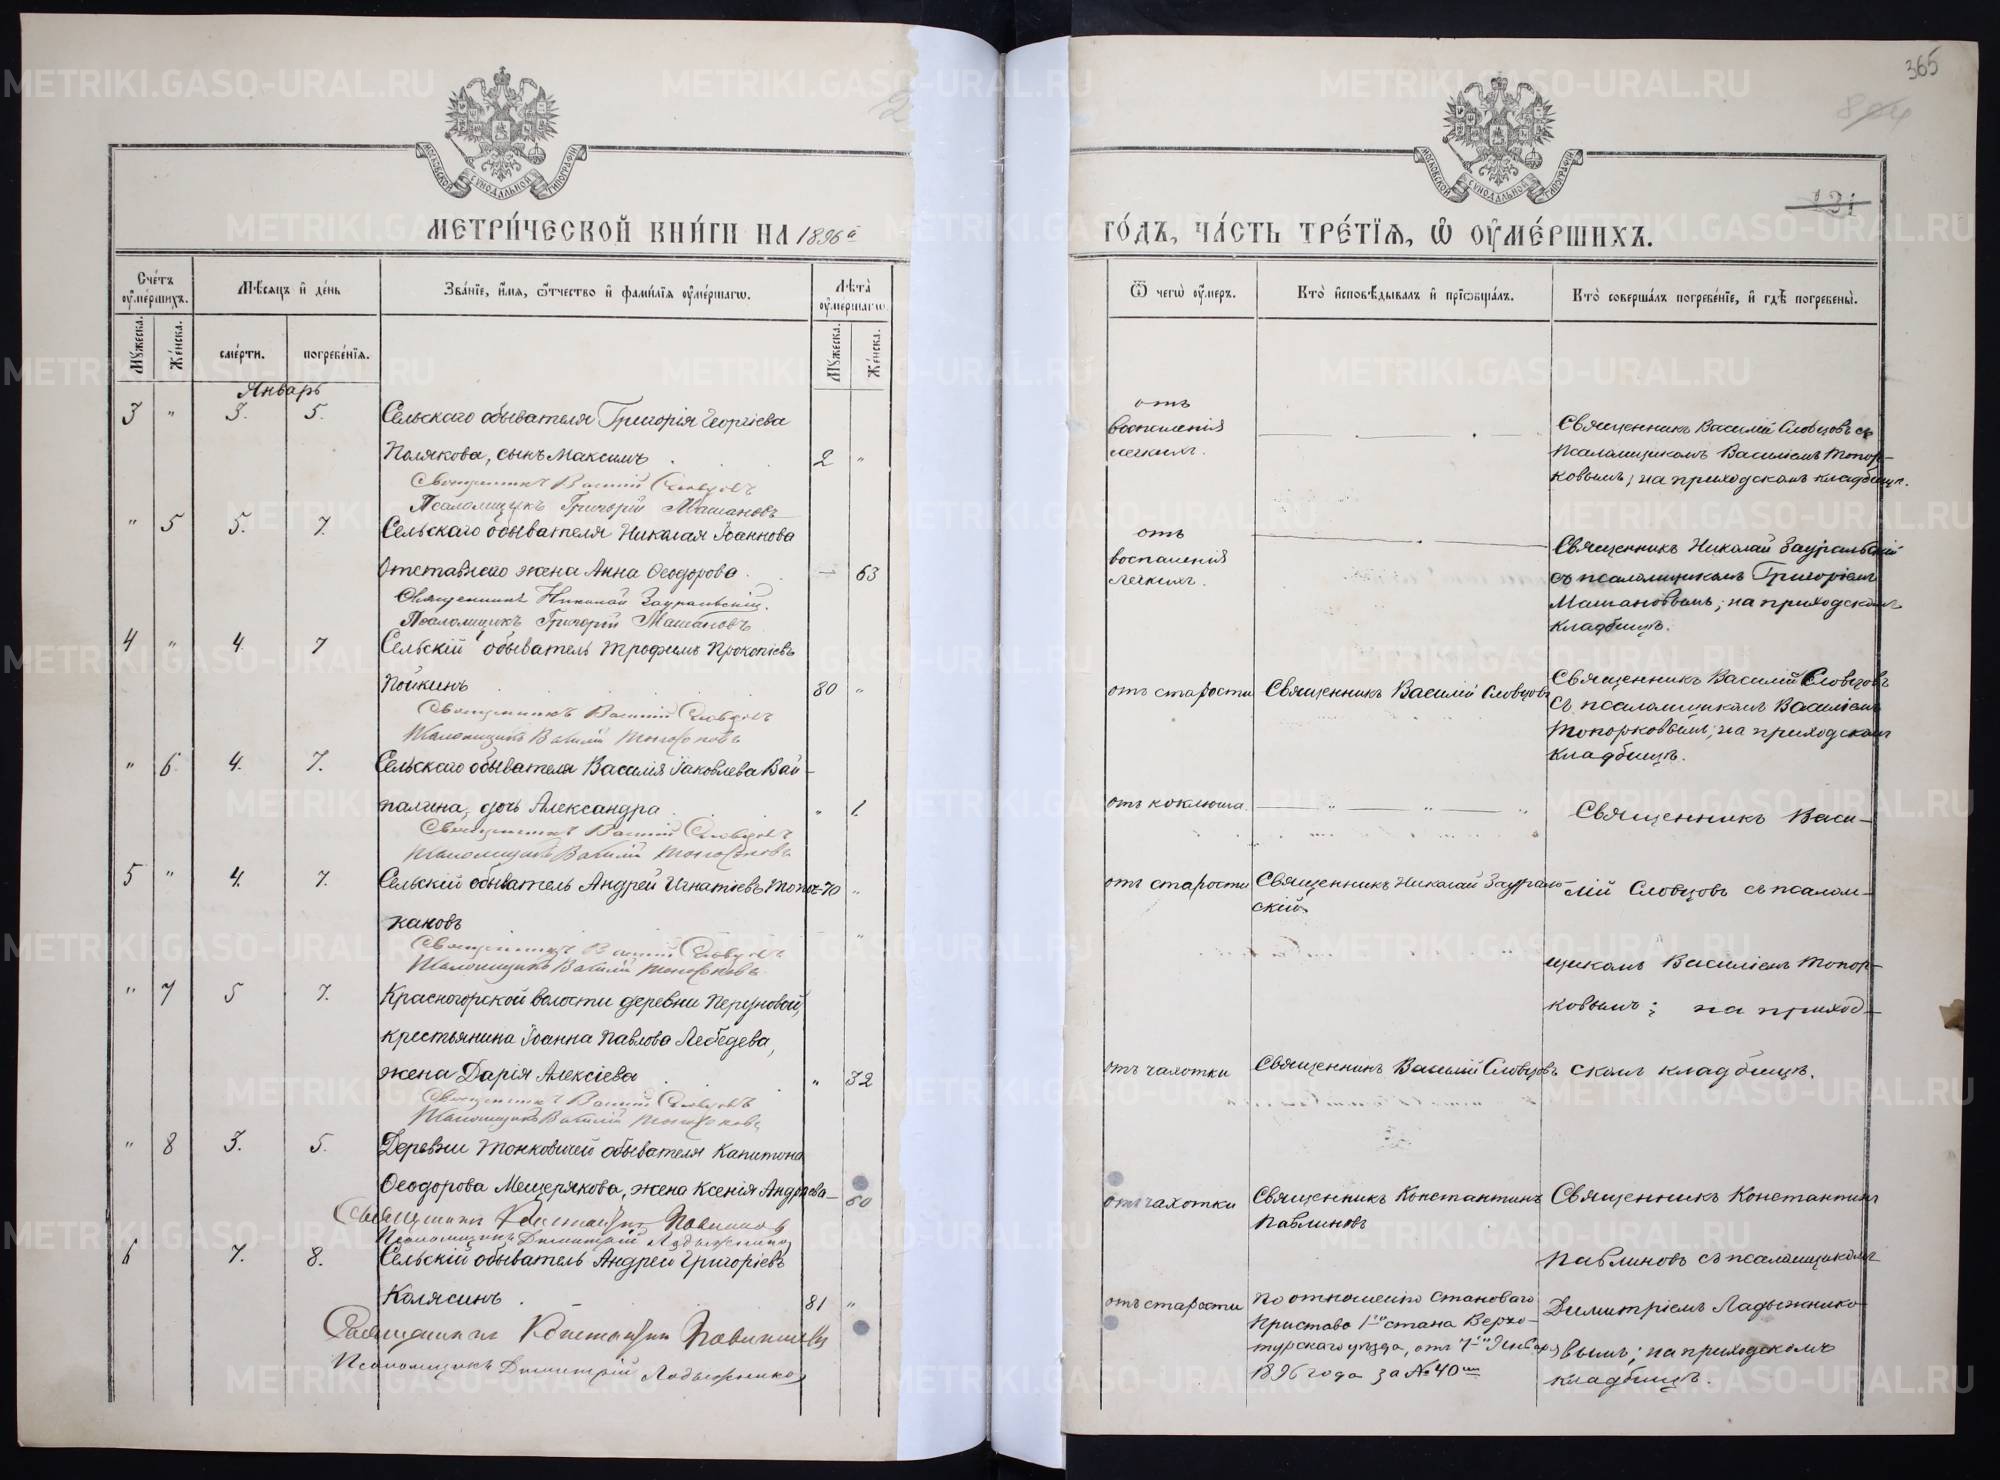 365
МЕТРИ́ЧЕСКОЙ КНИ́ГИ НА 1896й
ГО́ДЪ, ЧА́СТЬ ТРЕ́ТІѦ, Ѿ ОУМЕ́РШИХЪ.
131
Сче́тъ оуме́ршихъ.
Мѣсѧцъ и де́нь
Зва́нїе, и́мѧ, о́тчество и фами́лїѧ оуме́ршагѡ.
Лѣта̀ оуме́ршагѡ.
Ѿ чегѡ̀ оу́меръ.
Кто̀ и҆сповѣ́дывалъ и прїѡбща́лъ.
Кто̀ соверша́лъ погребе́нїе, и гдѣ̀ погребены̀.
Мужеска.
Же́нска.
сме́рти.
погребе́нїѧ.
Мужеска.
Же́нска.
Январь
3 " 3. 5. Сельскаго обывателя Григорія Георгіева
Полякова, сынъ Максимъ. 2 "
Священникъ Василій Словцовъ
Псаломщикъ Григорій Машановъ
отъ
воспаленія
легкихъ.
Священникъ Василій Словцовъ съ
псаломщикомъ Василіемъ Топор-
ковымъ; на приходскомъ кладбищѣ.
" 5 5. 7. Сельскаго обывателя Николая Іоаннова
жена Анна Ѳеодорова. — 63
Священникъ Николай Зауральскій.
Псаломщикъ Григорій Машановъ
отъ
воспаленія
легкихъ.
Священникъ Николай Зауральскій
съ псаломщикомъ Григоріемъ
Машановымъ; на приходскомъ
кладбищѣ.
4 " 4 7 Сельскій обыватель Трофимъ Прокопіевъ
Пойкинъ 80 "
Священникъ Василій Словцовъ
Псаломщикъ Василій Топорковъ
отъ старости
Священникъ Василій Словцовъ
Священникъ Василій Словцовъ
съ псаломщикомъ Василіемъ
Топорковымъ; на приходскомъ
кладбищѣ.
" 6 4. 7. Сельскаго обывателя Василія Іаковлева Вай-
палина, дочь Александра " 1.
Священникъ Василій Словцовъ
Псаломщикъ Василій Топорковъ
отъ коклюша
Священникъ Васи-
5 " 4. 7. Сельскій обыватель Андрей Игнатіевъ 70 "
кановъ
Священникъ Василій Словцовъ
Псаломщикъ Василій Топорковъ
отъ старости
Священникъ Николай Заураль-
скій
лій Словцовъ съ псалом-
щикомъ Василіемъ Топор-
ковымъ; на приход-
" 7 5 7. Красногорской волости деревни Перуновой,
крестьянина Іоанна Павлова Лебедева,
жена Дарія Алексіева " 32
Священникъ Василій Словцовъ
Псаломщикъ Василій Топорковъ
отъ чахотки
Священникъ Василій Словцовъ
скомъ кладбищѣ.
" 8 3. 5. Деревни обывателя Капитона
Ѳеодорова Мещерякова, жена Ксенія Андреева 60
Священникъ Константинъ Павлиновъ
Псаломщикъ Димитрій Ладыжниковъ
отъ чахотки
Священникъ Константинъ
Павлиновъ
Священникъ Константинъ
Павлиновъ съ псаломщикомъ
6 7. 8. Сельскій обыватель Андрей Григоріевъ
Колясинъ. 81 "
Священникъ Константинъ Павлиновъ
Псаломщикъ Димитрій Ладыжниковъ
отъ старости
По отношенію Становаго
Пристава 1го стана Верхо-
турскаго уѣзда, отъ 7го Января
1896 года за № 40мъ
Димитріемъ Ладыжнико-
вымъ; на приходскомъ
кладбищѣ.
METRIKI.GASO-URAL.RU